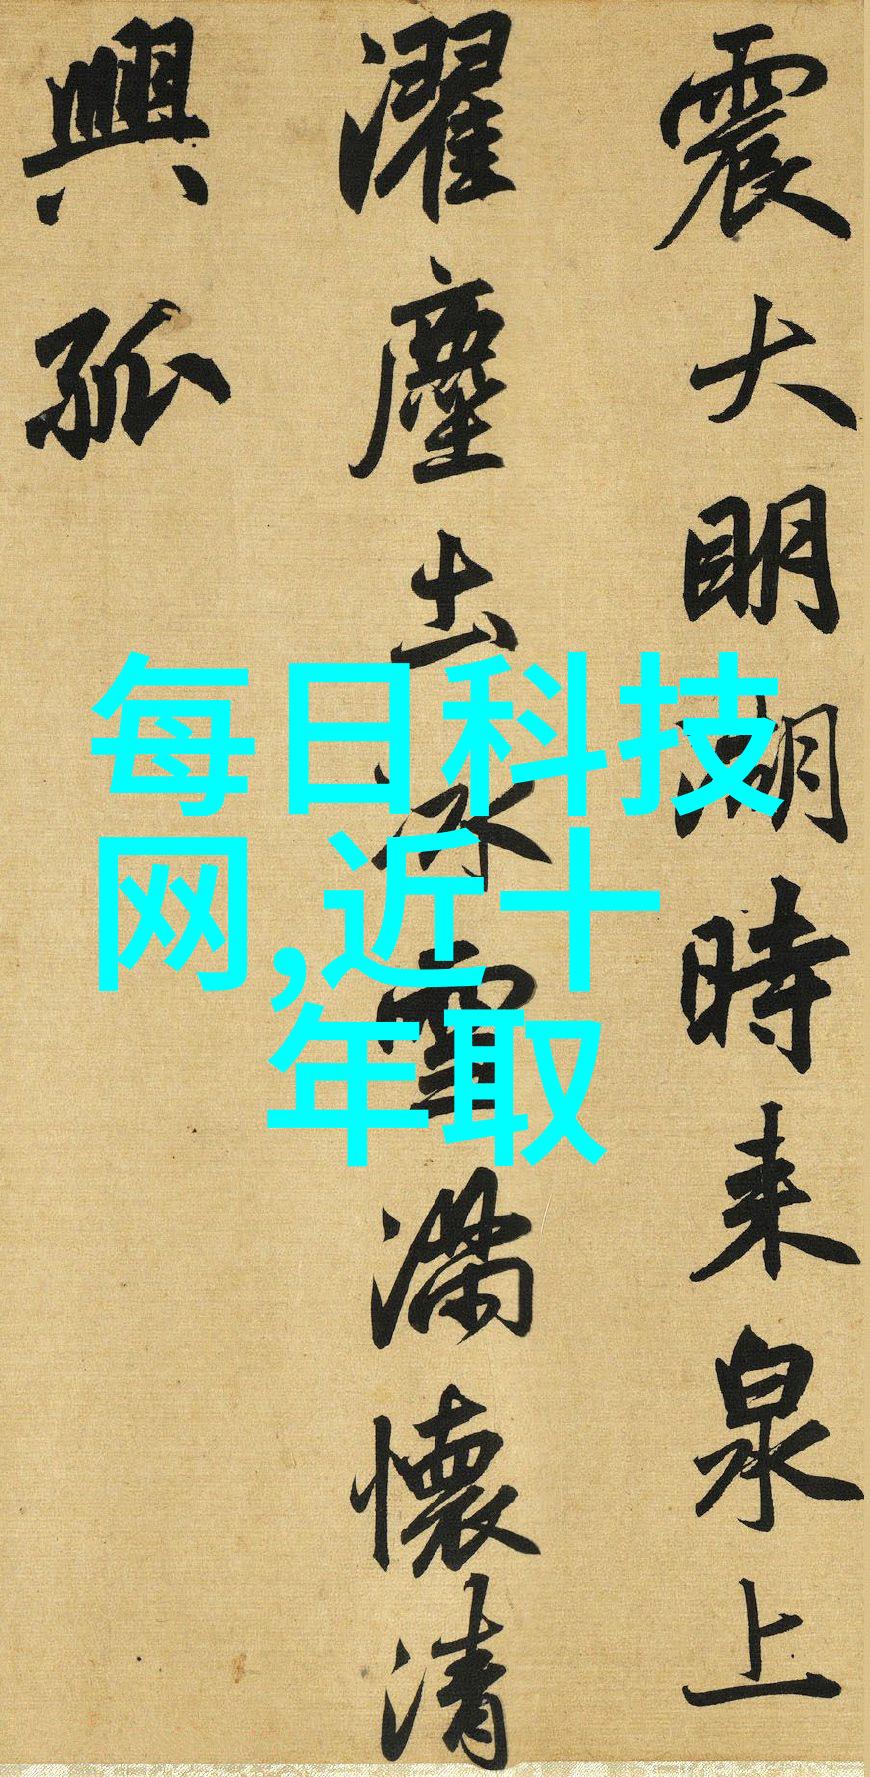 震大明湖時来泉上
濯塵土冰雪満懷清
興孤
每日科技
网,近十
年取